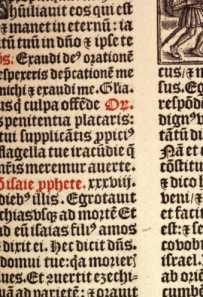 hūiliauit eos qui est
⁊ manet in eternū: ia
tū tuū in dño ⁊ ipse te
Exaudi deꝰ orationē
spexeris dep̄cationē me
michi ⁊ exaudi me. Gl'ia.
us q̄ culpa offēde Or.
penitentia placaris:
tui supplicātis ꝓpiciꝰ
flagella tue iracūdie q̄
n̄ris meremur auerte.
isaie ꝓphete. xxxviij.
dieb' illis. Egrotauit
chias vsq̄ ad mortē Et
ad eū isaias filiꝰ amos
⁊ dixit ei. Hec dicit dñs.
domui tue: q̄a morier
ues. Et ꝯuertit ezechi
ad parietē: ⁊ orauit
cus/⁊
sus. Eg
respōdē
dignꝰ
tātū di
Nā et
cōstitu
⁊ dico
veni/ ⁊
et facit
est: ⁊ se
israel.
ab oriē